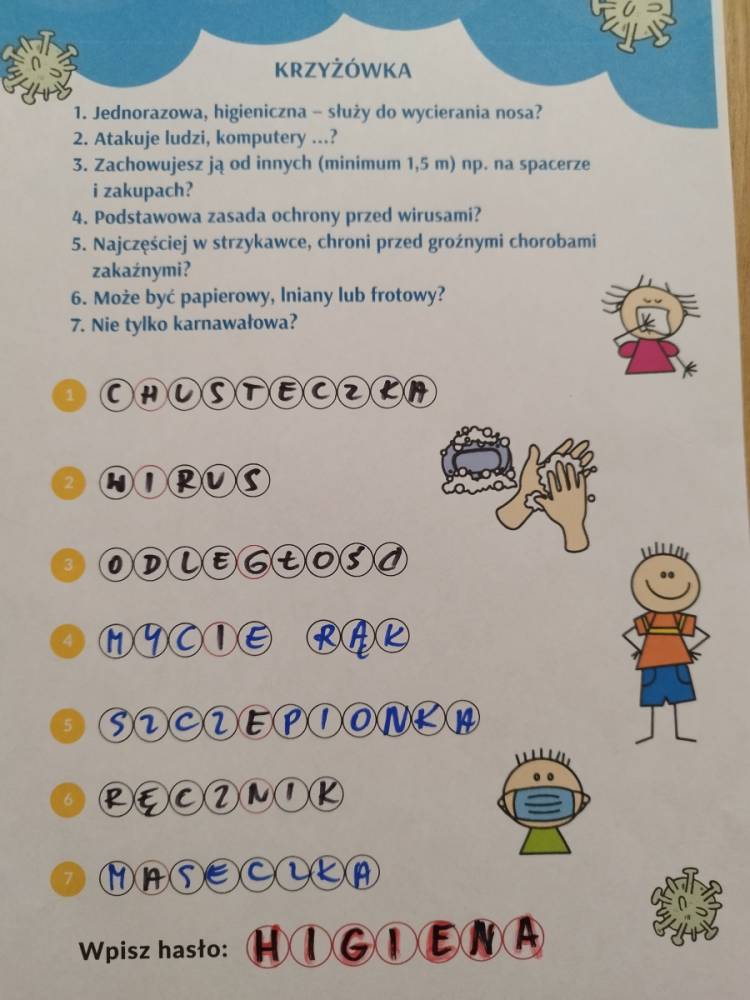 KRZYŻÓWKA
1. Jednorazowa, higieniczna – służy do wycierania nosa?
2. Atakuje ludzi, komputery ...?
3. Zachowujesz ją od innych (minimum 1,5 m) np. na spacerze
i zakupach?
4. Podstawowa zasada ochrony przed wirusami?
5. Najczęściej w strzykawce, chroni przed groźnymi chorobami
zakaźnymi?
6. Może być papierowy, lniany lub frotowy?
7. Nie tylko karnawałowa?
1 CHUSTECZKA
2 WIRUS
3 ODLEGŁOŚĆ
4 MYCIE RĄK
5 SZCZEPIONKA
6 RĘCZNIK
7 MASECZKA
Wpisz hasło: HIGIENA